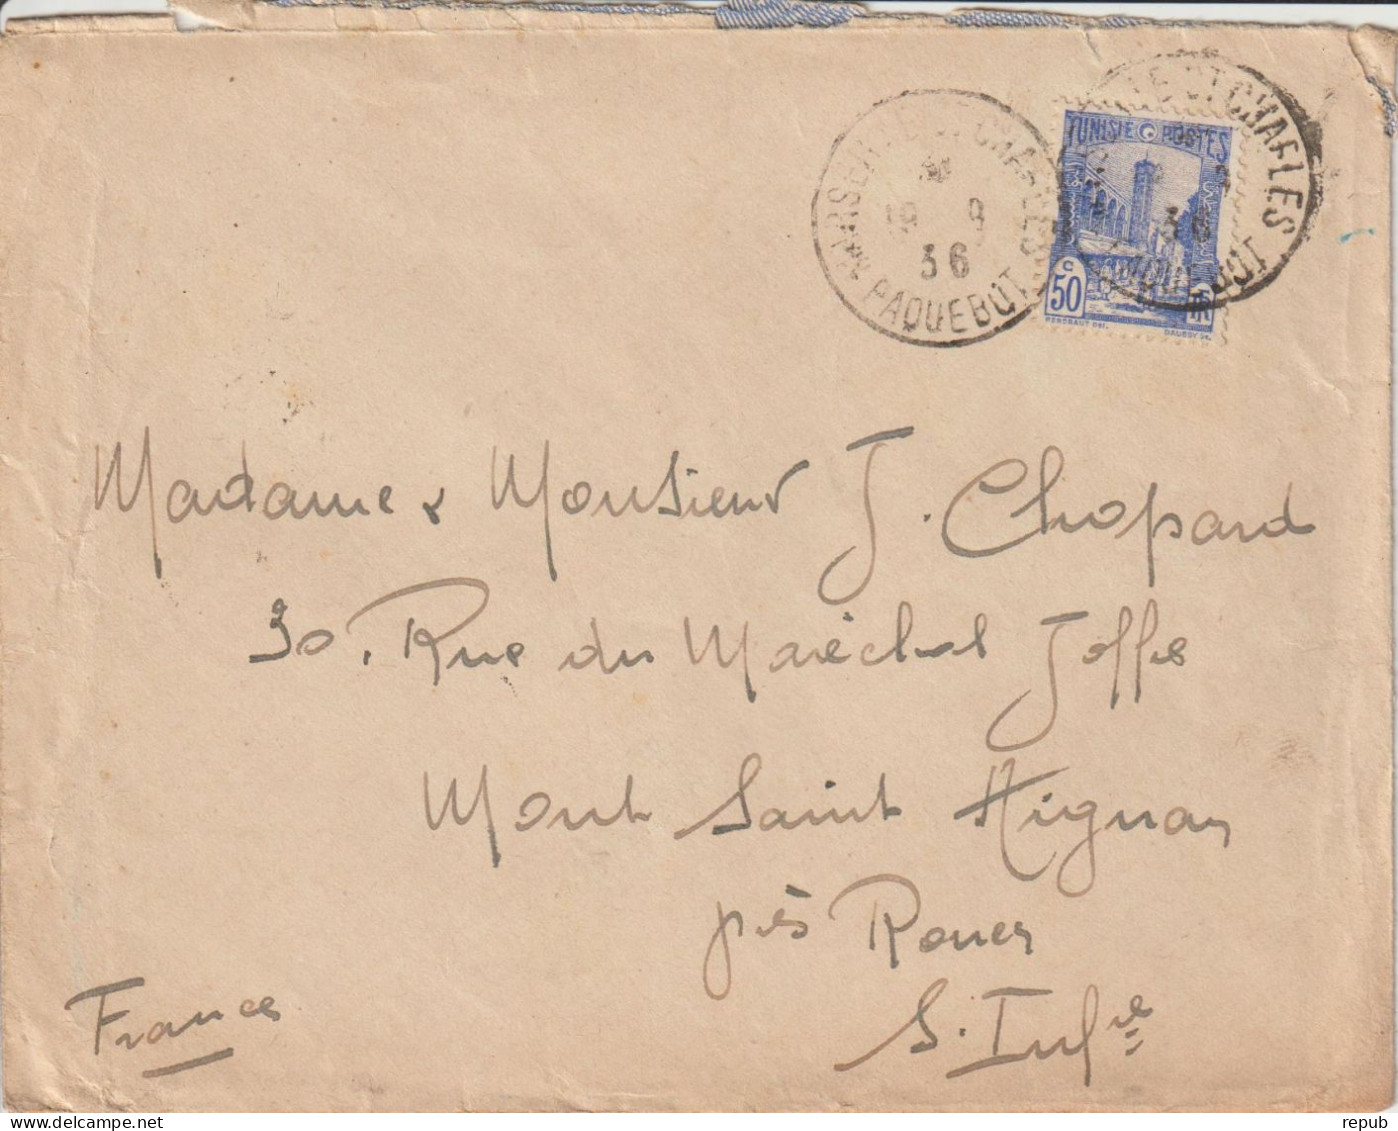 MARSEILLE ST CHARLES
19 9
36
PAQUEBOT
TUNISIE POSTES
50 c
ST CHARLES
36
Madame & Monsieur J. Chopard
30, Rue du Maréchal Joffre
Mont Saint Aignan
près Rouen
S. Infre
France
repub